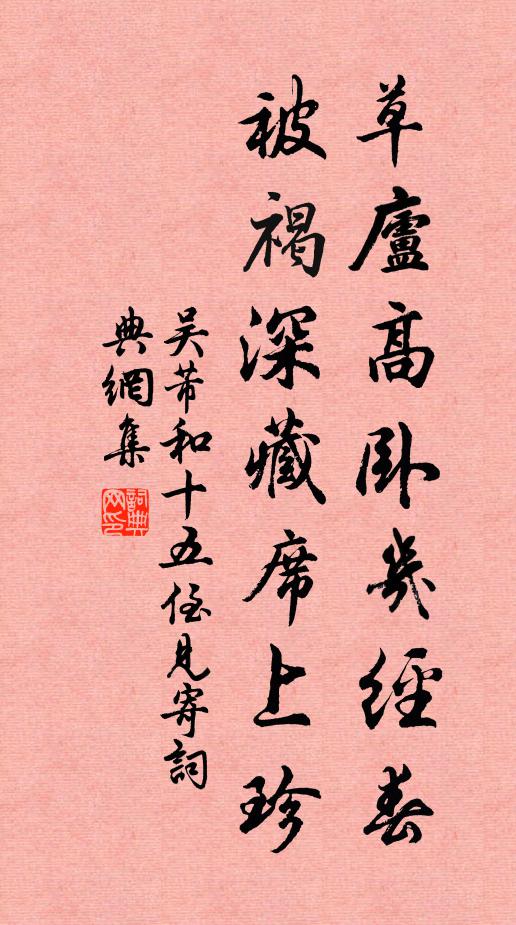 草廬高卧幾經春
被褐深藏席上珍
吴芾和十五侄見寄詞
典網集
詞典
网印